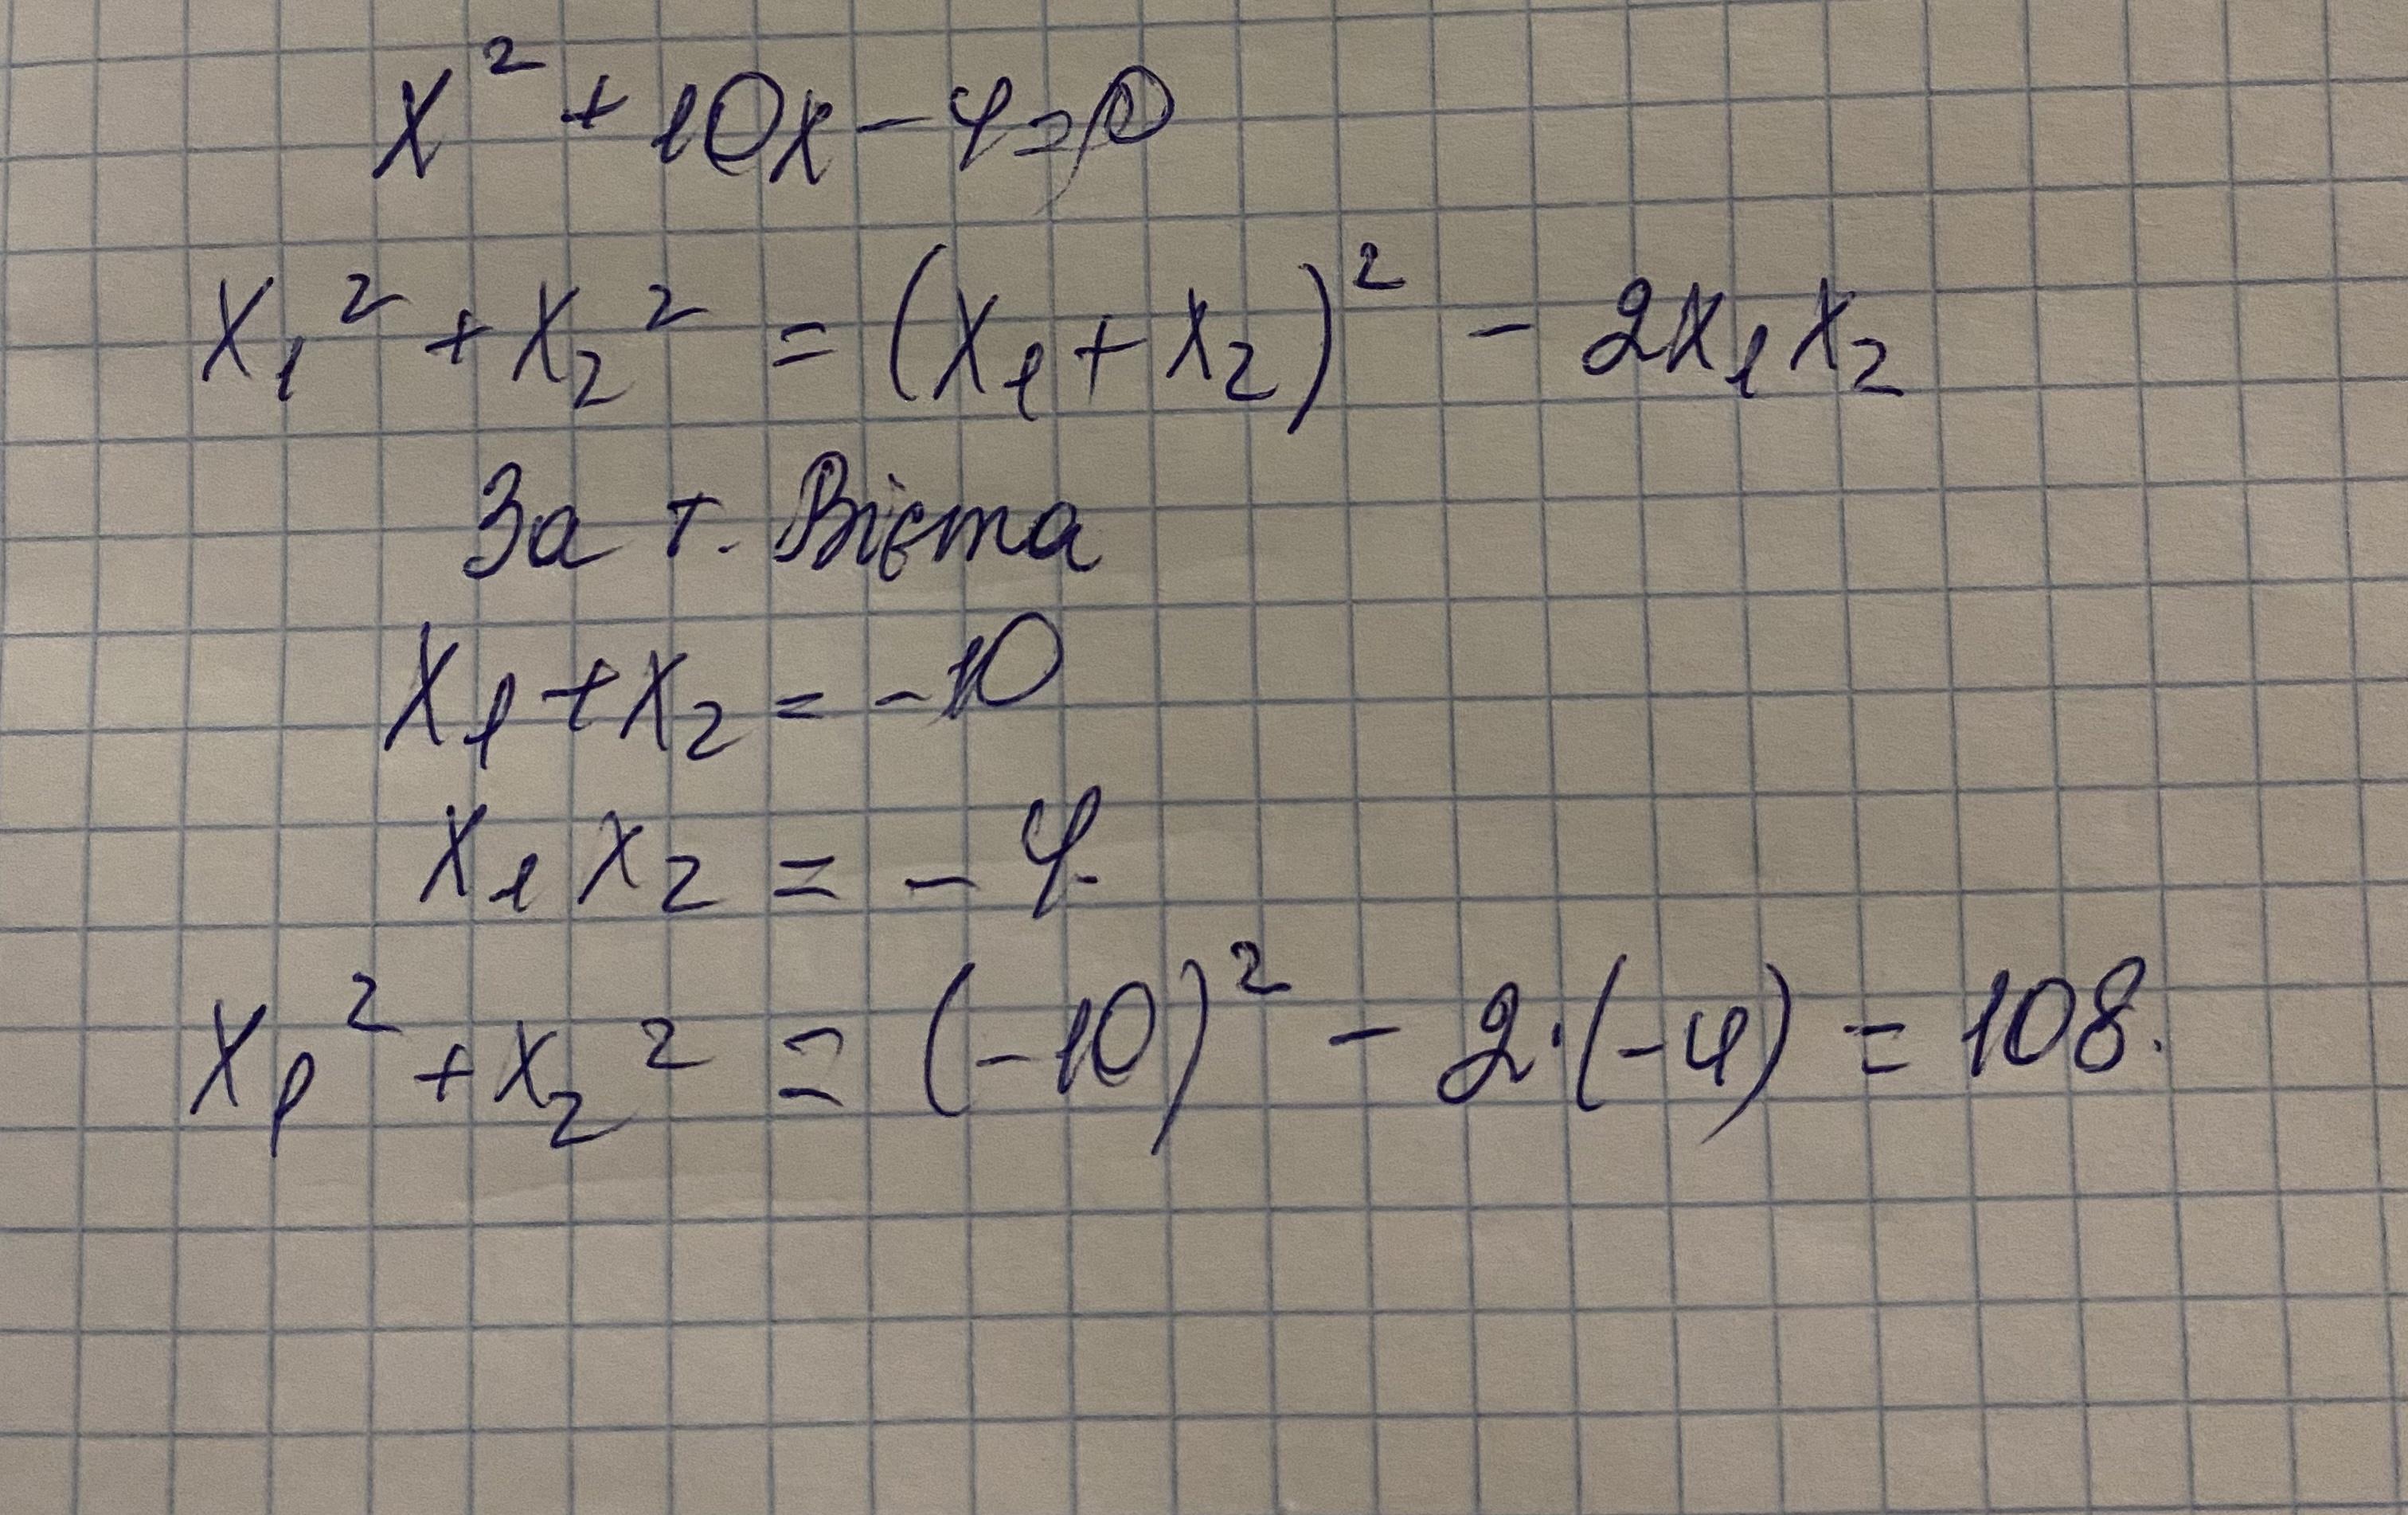 x² + 10x - 4 = 0
x₁² + x₂² = (x₁ + x₂)² - 2x₁x₂
За т. Вієта
x₁ + x₂ = -10
x₁ x₂ = -4
x₁² + x₂² = (-10)² - 2·(-4) = 108.